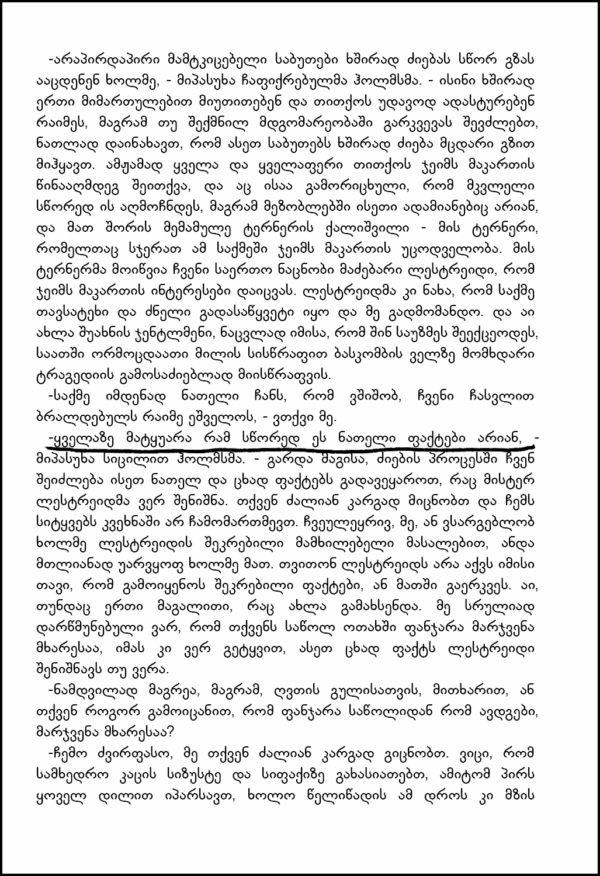 -არაპირდაპირი მამტკიცებელი საბუთები ხშირად ძიებას სწორ გზას
ააცდენენ ხოლმე, - მიპასუხა ჩაფიქრებულმა ჰოლმსმა. - ისინი ხშირად
ერთი მიმართულებით მიუთითებენ და თითქოს უდავოდ ადასტურებენ
რაიმეს, მაგრამ თუ შექმნილ მდგომარეობაში გარკვევას შევძლებთ,
ნათლად დაინახავთ, რომ ასეთ საბუთებს ხშირად ძიება მცდარი გზით
მიჰყავთ. ამჟამად ყველა და ყველაფერი თითქოს ჯეიმს მაკართის
წინააღმდეგ შეითქვა, და აც ისაა გამორიცხული, რომ მკვლელი
სწორედ ის აღმოჩნდეს, მაგრამ მეზობლებში ისეთი ადამიანებიც არიან,
და მათ შორის მემამულე ტერნერის ქალიშვილი - მის ტერნერი,
რომელთაც სჯერათ ამ საქმეში ჯეიმს მაკართის უცოდველობა. მის
ტერნერმა მოიწვია ჩვენი საერთო ნაცნობი მაძებარი ლესტრეიდი, რომ
ჯეიმს მაკართის ინტერესები დაიცვას. ლესტრეიდმა კი ნახა, რომ საქმე
თავსატეხი და ძნელი გადასაწყვეტი იყო და მე გადმომანდო. და აი
ახლა შუახნის ჯენტლმენი, ნაცვლად იმისა, რომ შინ საუზმეს შეექცეოდეს,
საათში ორმოცდაათი მილის სისწრაფით ბასკომბის ველზე მომხდარი
ტრაგედიის გამოსაძიებლად მიისწრაფვის.
-საქმე იმდენად ნათელი ჩანს, რომ ვშიშობ, ჩვენი ჩასვლით
ბრალდებულს რაიმე ეშველოს, - ვთქვი მე.
-ყველაზე მატყუარა რამ სწორედ ეს ნათელი ფაქტები არიან, -
მიპასუხა სიცილით ჰოლმსმა. - გარდა მაგისა, ძიების პროცესში ჩვენ
შეიძლება ისეთ ნათელ და ცხად ფაქტებს გადავეყაროთ, რაც მისტერ
ლესტრეიდმა ვერ შენიშნა. თქვენ ძალიან კარგად მიცნობთ და ჩემს
სიტყვებს კვეხნაში არ ჩამომართმევთ. ჩვეულეყრივ, მე, ან ვსარგებლობ
ხოლმე ლესტრეიდის შეკრებილი მამხილებელი მასალებით, ანდა
მთლიანად უარვყოფ ხოლმე მათ. თვითონ ლესტრეიდს არა აქვს იმისი
თავი, რომ გამოიყენოს შეკრებილი ფაქტები, ან მათში გაერკვეს. აი,
თუნდაც ერთი მაგალითი, რაც ახლა გამახსენდა. მე სრულიად
დარწმუნებული ვარ, რომ თქვენს საწოლ ოთახში ფანჯარა მარჯვენა
მხარესაა, იმას კი ვერ გეტყვით, ასეთ ცხად ფაქტს ლესტრეიდი
შენიშნავს თუ ვერა.
-ნამდვილად მაგრეა, მაგრამ, ღვთის გულისათვის, მითხარით, ან
თქვენ როგორ გამოიცანით, რომ ფანჯარა საწოლიდან რომ ავდგები,
მარჯვენა მხარესაა?
-ჩემო ძვირფასო, მე თქვენ ძალიან კარგად გიცნობთ. ვიცი, რომ
სამხედრო კაცის სიზუსტე და სიფაქიზე გახასიათებთ, ამიტომ პირს
ყოველ დილით იპარსავთ, ხოლო წელიწადის ამ დროს კი მზის